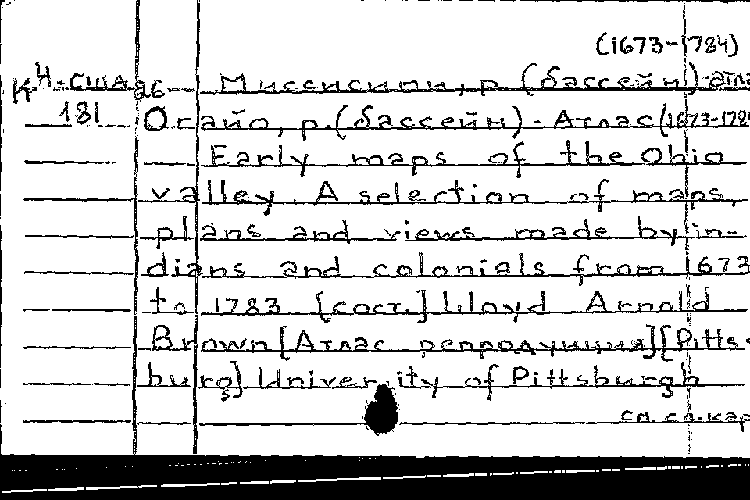 (1673-1784)
К 4-США 26 Миссисипи, р. (бассейн)-атла
181 Огайо, р. (бассейн) - Атлас (1673-178
Early maps of the Ohio
valley. A selection of maps,
plans and views made by in-
dians and colonials from 1673
to 1783 [сост.] Lloyd Arnold
Brown [Атлас репродукция] [Pitts-
burg] University of Pittsburgh
см. сл. кар